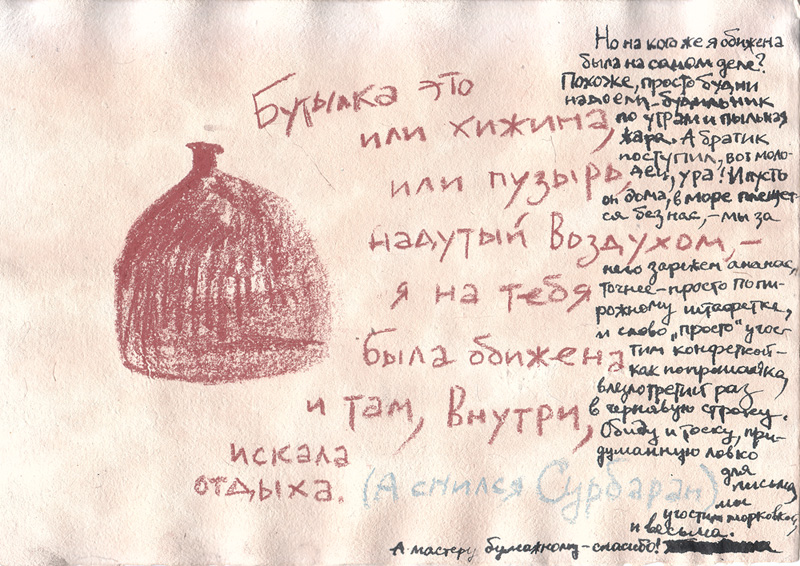 Бутылка это
или хижина,
или пузырь,
надутый воздухом, –
я на тебя
была обижена
и там, внутри,
искала
отдыха. (А снился Сурбаран)
Но на кого же я обижена
была на самом деле?
Похоже, просто будни
надоели – будильник
по утрам и пыльная
жара. А братик
поступил, вот моло-
дец, ура! И пусть
он дома, в море плещет-
ся без нас, – мы за
него зарежем ананас,
точнее – просто по пи-
рожному штафетке,
и слово „просто" угос-
тим конфеткой –
как попрошайка,
влезло третий раз
в черновую строчку.
Обиду и тоску, при-
думанную ловко
для
письма,
мы
угостим морковкой,
и весьма.
А мастеру бумажному – спасибо!